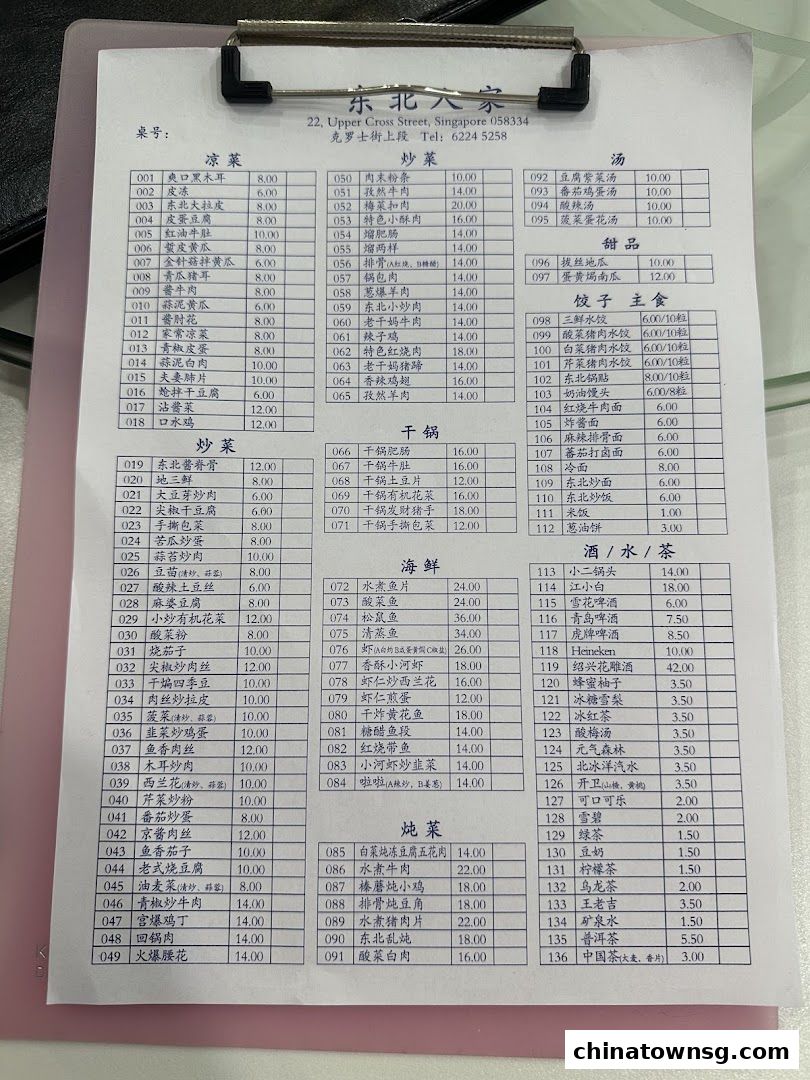 东北人家
22, Upper Cross Street, Singapore 058334
克罗士街上段 Tel: 6224 5258
桌号：
凉菜
001 爽口黑木耳 8.00
002 皮冻 6.00
003 东北大拉皮 8.00
004 皮蛋豆腐 8.00
005 红油牛肚 10.00
006 蜇皮黄瓜 8.00
007 金针菇拌黄瓜 6.00
008 青瓜猪耳 8.00
009 酱牛肉 8.00
010 蒜泥黄瓜 6.00
011 酱肘花 8.00
012 家常凉菜 8.00
013 青椒皮蛋 8.00
014 蒜泥白肉 10.00
015 夫妻肺片 10.00
016 炝拌干豆腐 6.00
017 沾酱菜 12.00
018 口水鸡 12.00
炒菜
019 东北酱脊骨 12.00
020 地三鲜 8.00
021 大豆芽炒肉 6.00
022 尖椒干豆腐 6.00
023 手撕包菜 8.00
024 苦瓜炒蛋 8.00
025 蒜苔炒肉 10.00
026 豆苗(清炒、蒜蓉) 8.00
027 酸辣土豆丝 6.00
028 麻婆豆腐 8.00
029 小炒有机花菜 12.00
030 酸菜粉 8.00
031 烧茄子 10.00
032 尖椒炒肉丝 12.00
033 干煸四季豆 10.00
034 肉丝炒拉皮 10.00
035 菠菜(清炒、蒜蓉) 10.00
036 韭菜炒鸡蛋 10.00
037 鱼香肉丝 12.00
038 木耳炒肉 10.00
039 西兰花(清炒、蒜蓉) 10.00
040 芹菜炒粉 10.00
041 番茄炒蛋 8.00
042 京酱肉丝 12.00
043 鱼香茄子 10.00
044 老式烧豆腐 10.00
045 油麦菜(清炒、蒜蓉) 8.00
046 青椒炒牛肉 14.00
047 宫爆鸡丁 14.00
048 回锅肉 14.00
049 火爆腰花 14.00
炒菜
050 肉末粉条 10.00
051 孜然牛肉 14.00
052 梅菜扣肉 20.00
053 特色小酥肉 16.00
054 熘肥肠 14.00
055 熘两样 14.00
056 排骨(A红烧、B糖醋) 14.00
057 锅包肉 14.00
058 葱爆羊肉 14.00
059 东北小炒肉 14.00
060 老干妈牛肉 14.00
061 辣子鸡 14.00
062 特色红烧肉 18.00
063 老干妈猪蹄 14.00
064 香辣鸡翅 16.00
065 孜然羊肉 14.00
干锅
066 干锅肥肠 16.00
067 干锅牛肚 16.00
068 干锅土豆片 12.00
069 干锅有机花菜 16.00
070 干锅发财猪手 18.00
071 干锅手撕包菜 12.00
海鲜
072 水煮鱼片 24.00
073 酸菜鱼 24.00
074 松鼠鱼 36.00
075 清蒸鱼 34.00
076 虾(A白灼 B咸蛋黄焗 C椒盐) 26.00
077 香酥小河虾 18.00
078 虾仁炒西兰花 16.00
079 虾仁煎蛋 12.00
080 干炸黄花鱼 18.00
081 糖醋鱼段 14.00
082 红烧带鱼 14.00
083 小河虾炒韭菜 14.00
084 啦啦(A辣炒，B姜葱) 14.00
炖菜
085 白菜炖冻豆腐五花肉 14.00
086 水煮牛肉 22.00
087 榛蘑炖小鸡 18.00
088 排骨炖豆角 18.00
089 水煮猪肉片 22.00
090 东北乱炖 18.00
091 酸菜白肉 16.00
汤
092 豆腐紫菜汤 10.00
093 番茄鸡蛋汤 10.00
094 酸辣汤 10.00
095 菠菜蛋花汤 10.00
甜品
096 拔丝地瓜 10.00
097 蛋黄焗南瓜 12.00
饺子 主食
098 三鲜水饺 6.00/10粒
099 酸菜猪肉水饺 6.00/10粒
100 白菜猪肉水饺 6.00/10粒
101 芹菜猪肉水饺 6.00/10粒
102 东北锅贴 8.00/10粒
103 奶油馒头 6.00/8粒
104 红烧牛肉面 6.00
105 炸酱面 6.00
106 麻辣排骨面 6.00
107 番茄打卤面 6.00
108 冷面 8.00
109 东北炒面 6.00
110 东北炒饭 6.00
111 米饭 1.00
112 葱油饼 3.00
酒/水/茶
113 小二锅头 14.00
114 江小白 18.00
115 雪花啤酒 6.00
116 青岛啤酒 7.50
117 虎牌啤酒 8.50
118 Heineken 10.00
119 绍兴花雕酒 42.00
120 蜂蜜柚子 3.50
121 冰糖雪梨 3.50
122 冰红茶 3.50
123 酸梅汤 3.50
124 元气森林 3.50
125 北冰洋汽水 3.50
126 开卫(山楂、黄桃) 3.50
127 可口可乐 2.00
128 雪碧 2.00
129 绿茶 1.50
130 豆奶 1.50
131 柠檬茶 1.50
132 乌龙茶 2.00
133 王老吉 3.50
134 矿泉水 1.50
135 普洱茶 5.50
136 中国茶(大麦、香片) 3.00
chinatownsg.com